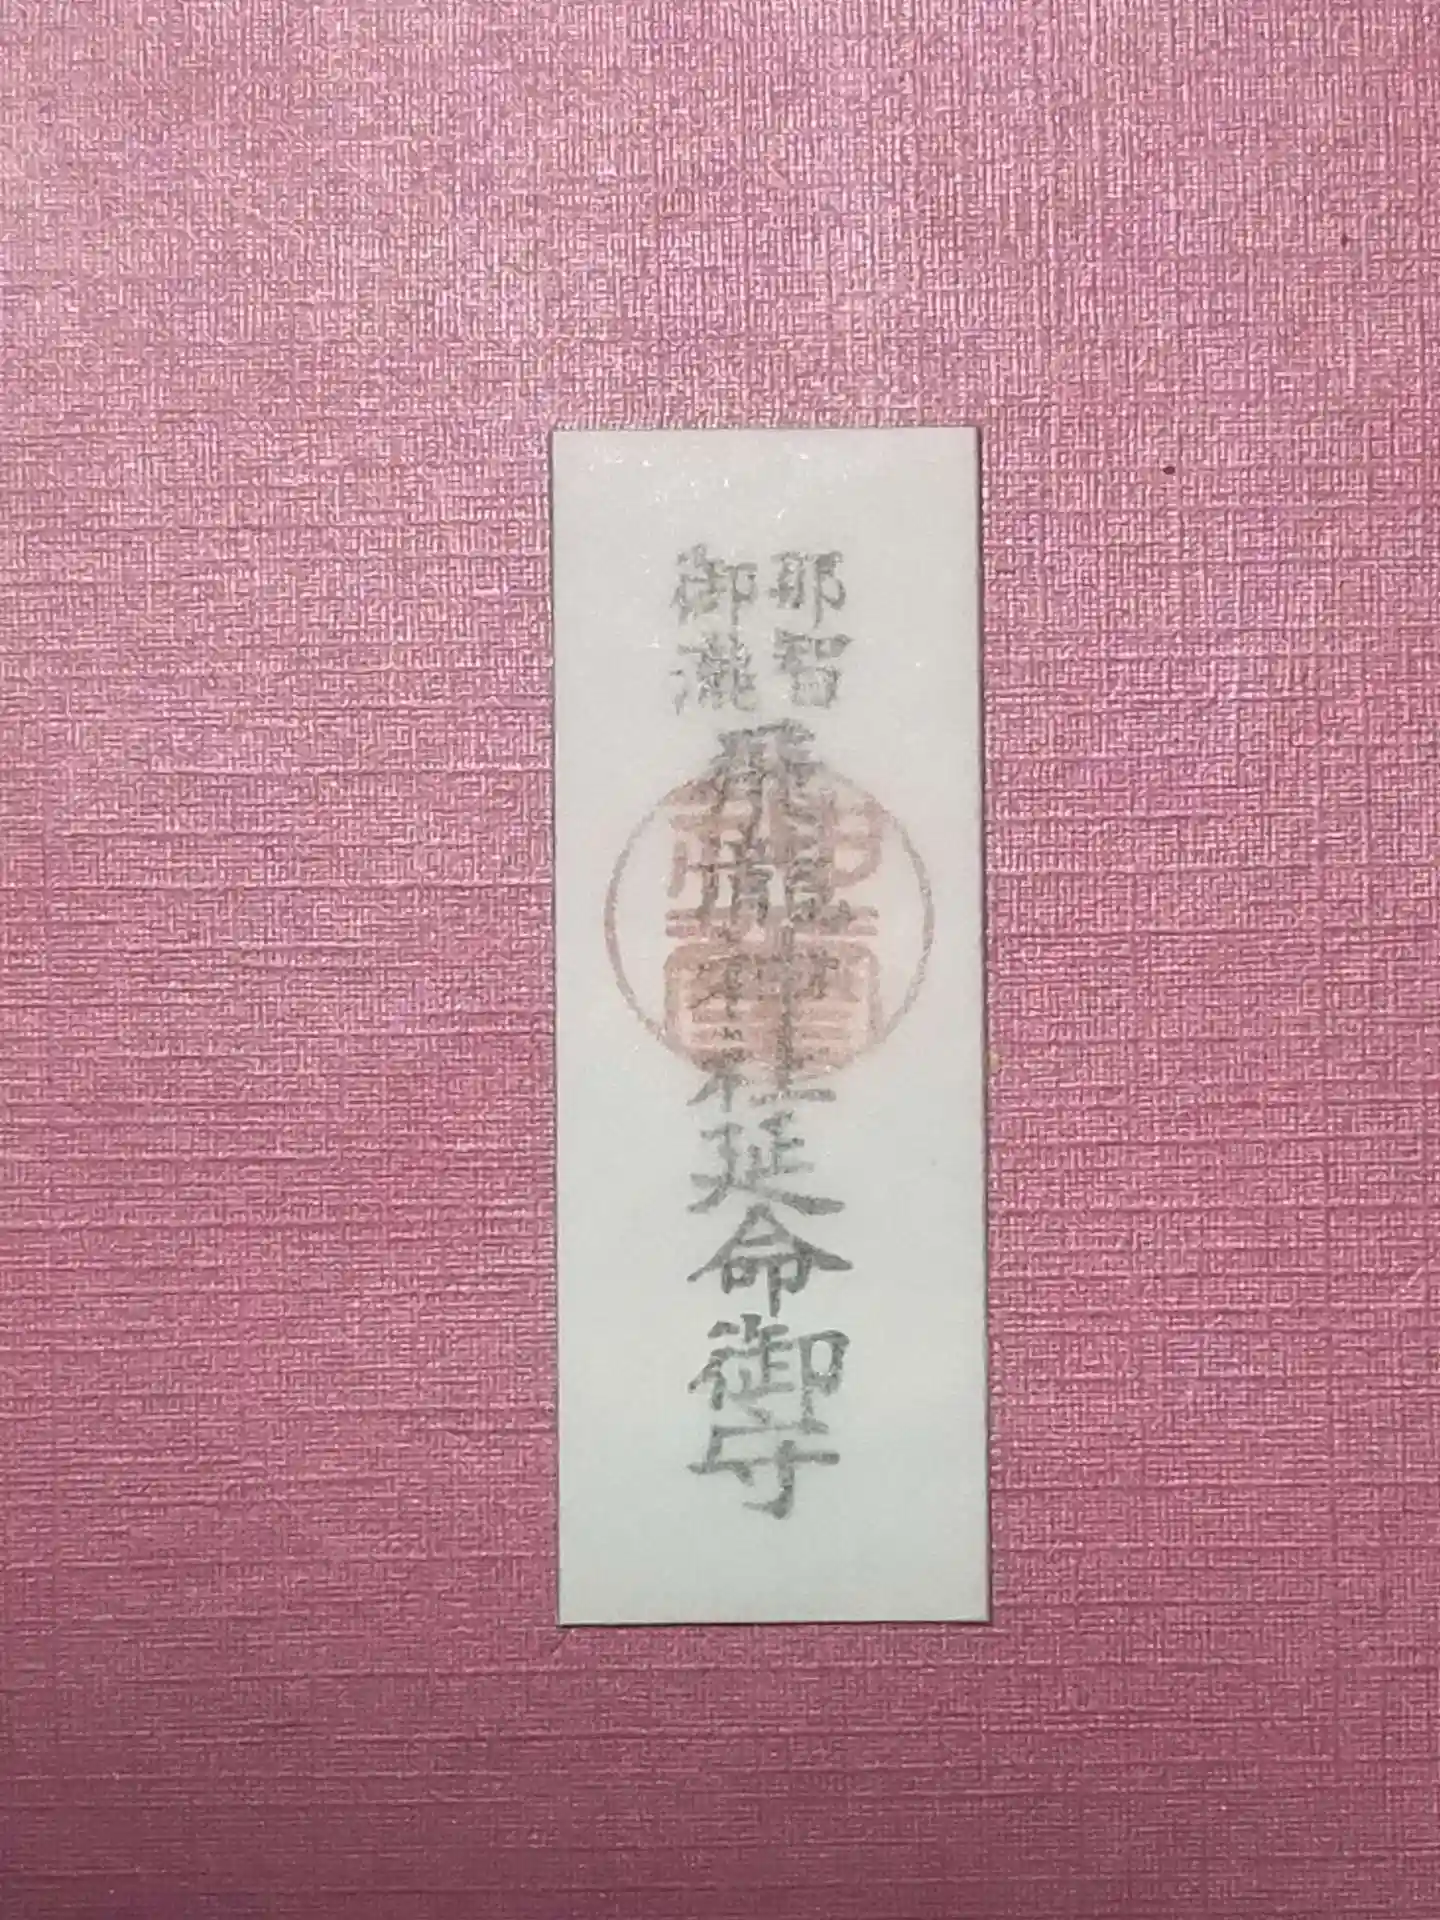 那智
御瀧
飛龍神社延命御守